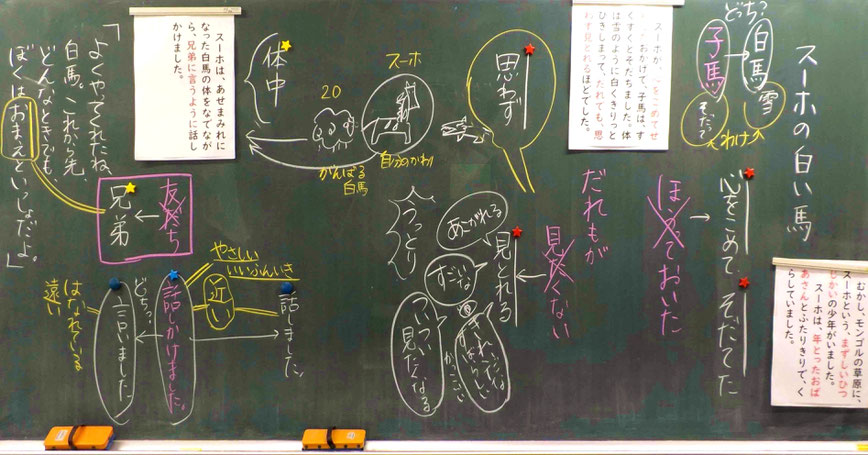 スーホの白い馬
どっち?
白馬
雪
子馬
そだつ
わけ
心をこめて そだてた
ほうっておいた
むかし、モンゴルの草原に、
スーホという、まずしいひつ
じかいの少年がいました。
スーホは、年とったおば
あさんとふたりきりで、く
らしていました。
スーホが、心をこめてせ
わしたおかげで、子馬は、す
くすくとそだちました。体
は雪のように白く、きりっと
ひきしまって、だれでも、思
わず見とれるほどでした。
思わず
だれもが
見たくない
見とれる
あこがれる
すごいな
うっとり
きれいだな
すばらしい
かっこいい
ついつい見たくなる
スーホ
自分のかわり
20
がんばる
白馬
体中
スーホは、あせまみれに
なった白馬の体をなでなが
ら、兄弟に言うように話し
かけました。
「よくやってくれたね、
白馬。これから先、
どんなときでも、
ぼくはおまえといっしょだよ。」
友だち
兄弟
話しました。
やさしい
いいふんいき
近い
話しかけました。
どっち?
言いました。
はなれている
遠い